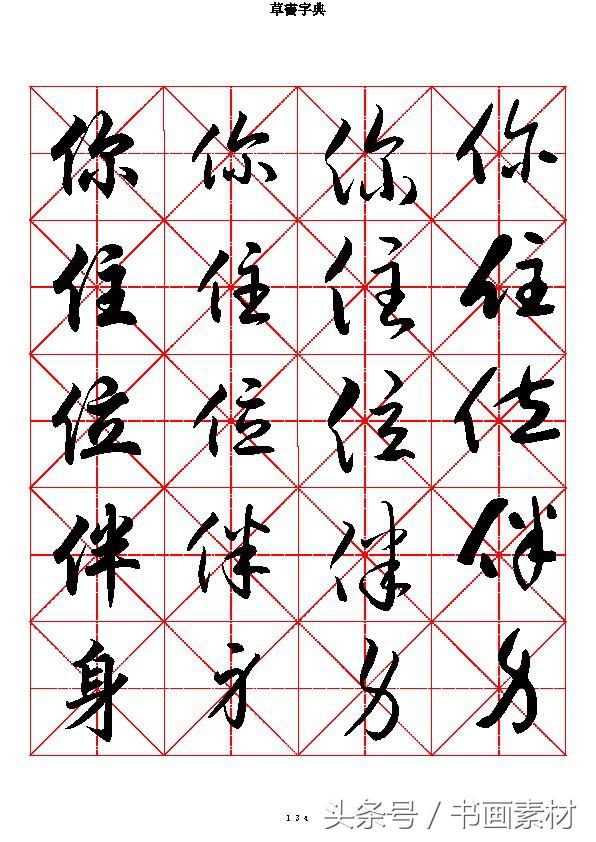 草書字典
你 你 你 你
住 住 住 住
位 位 位 位
伴 伴 伴 伴
身 身 身 身
134
头条号 / 书画素材